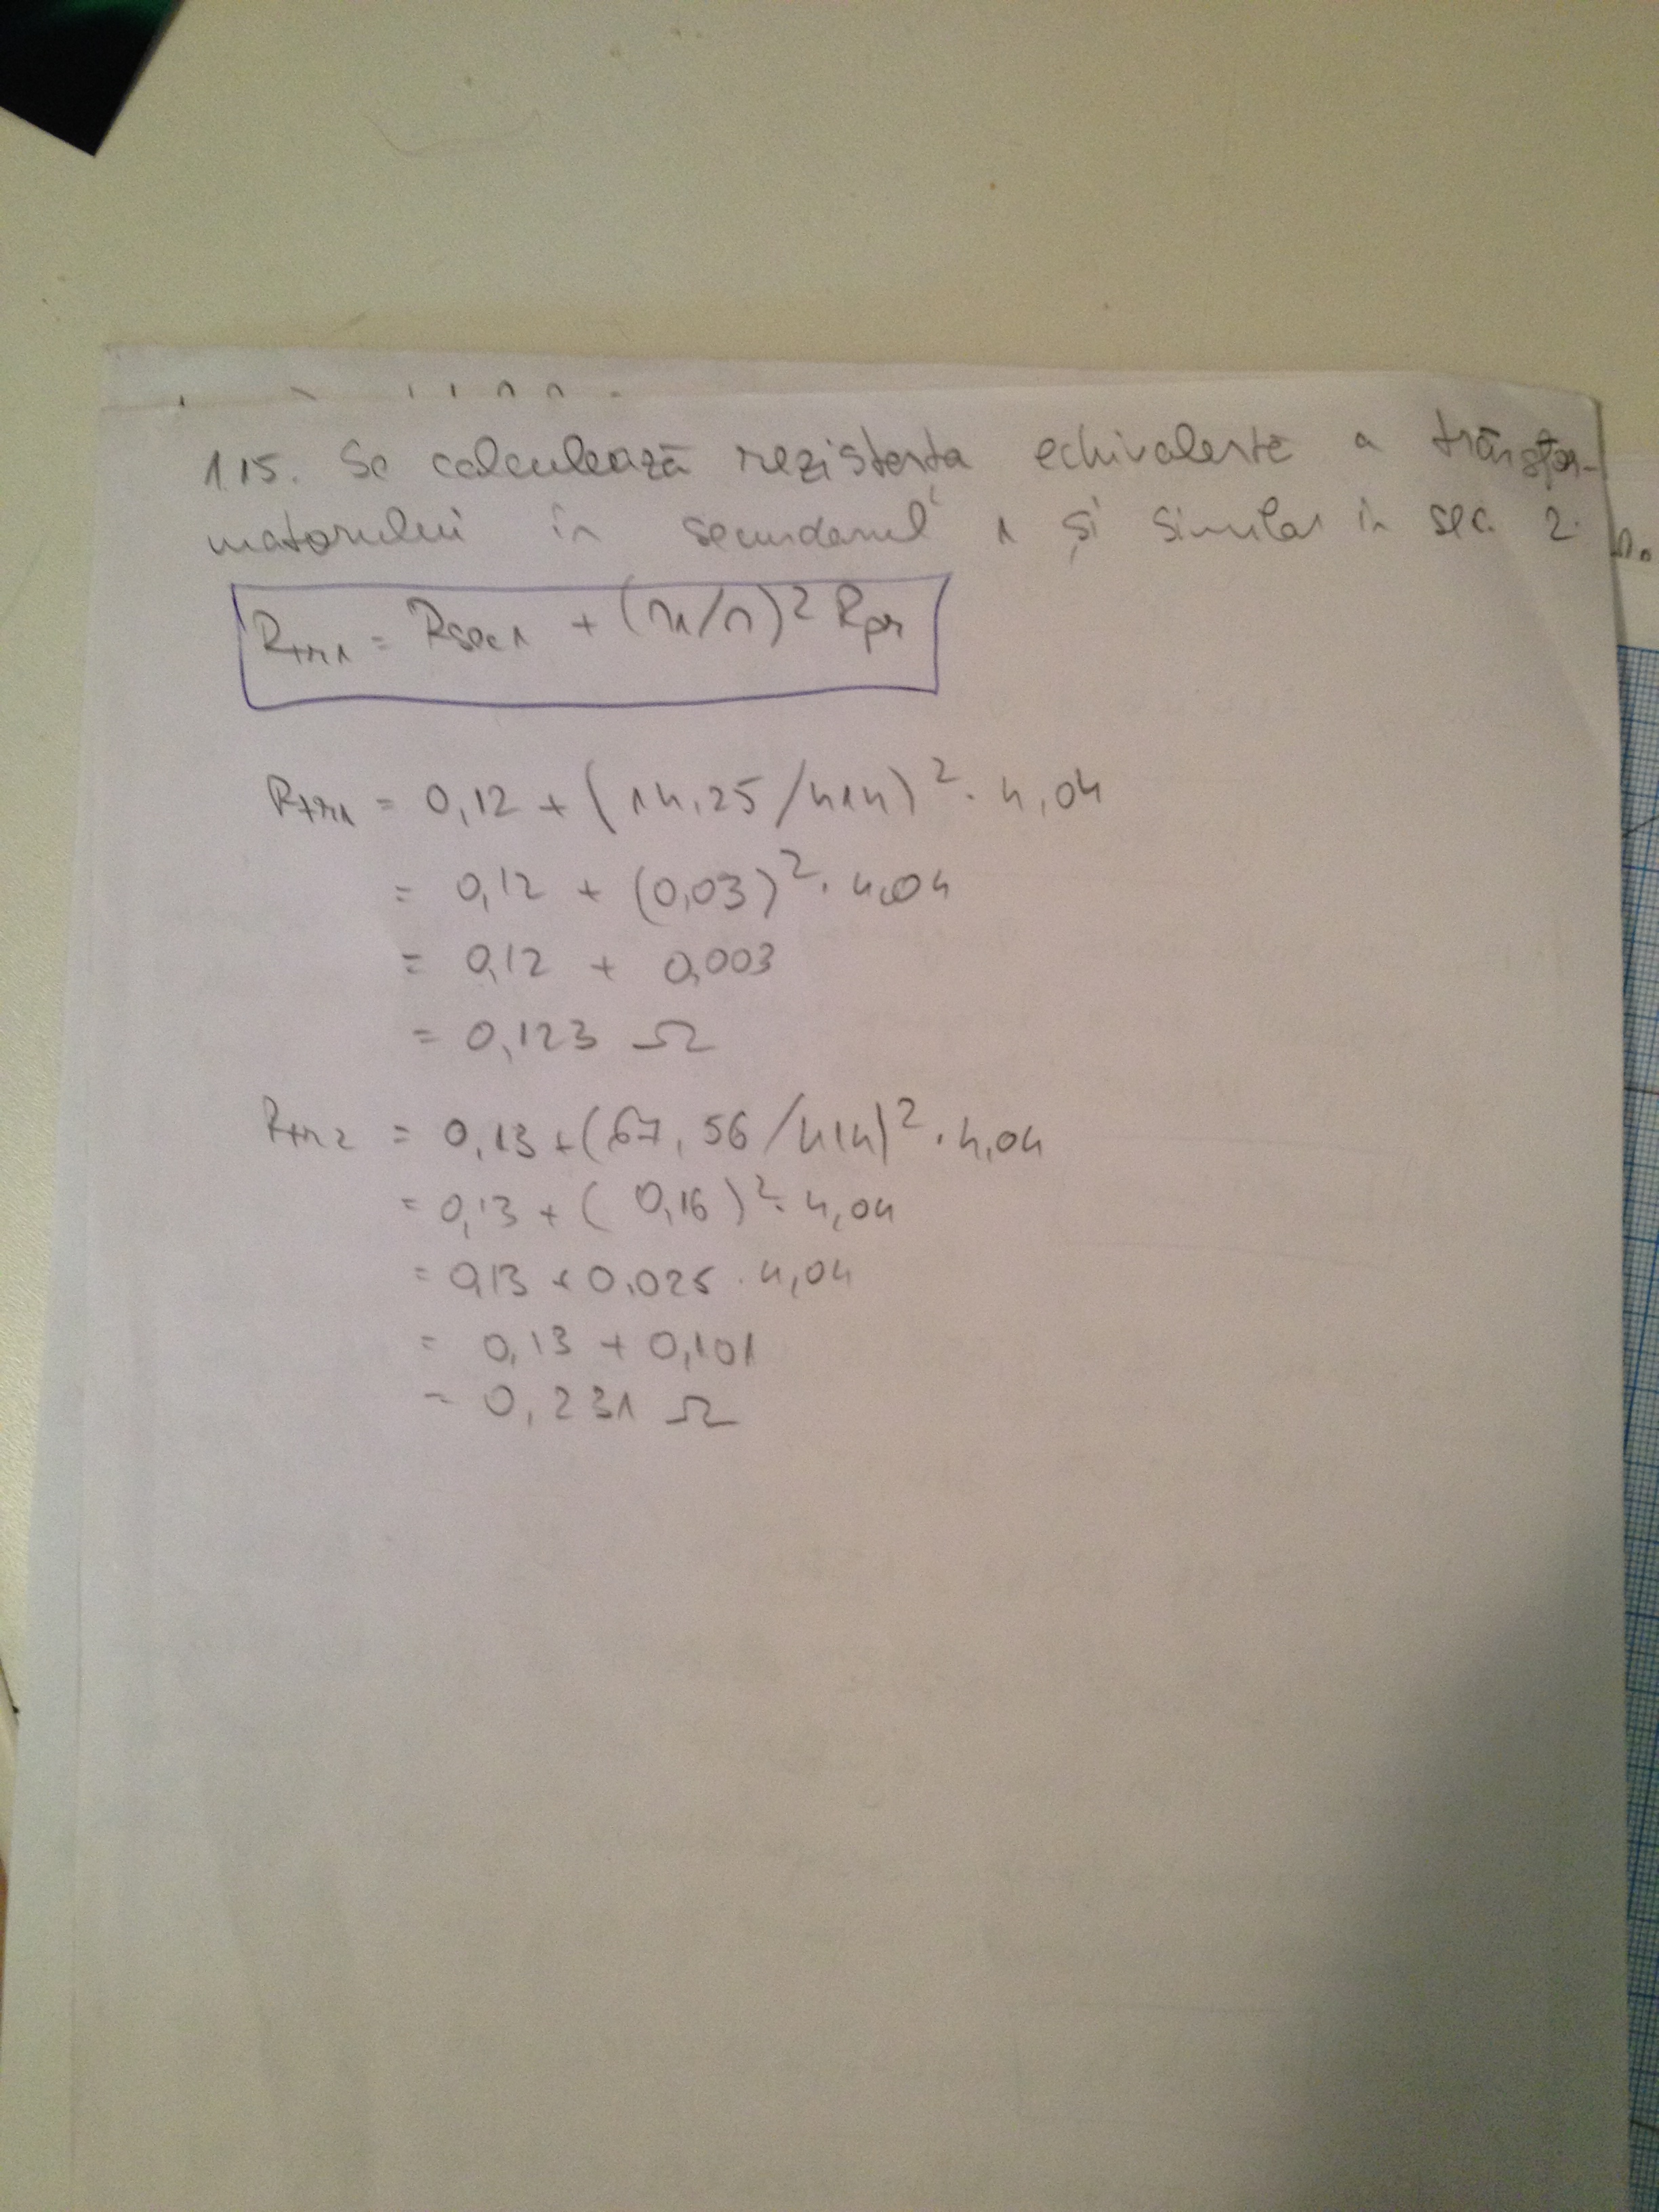 1.15. Se calculează rezistența echivalentă a transfor-
matorului în secundarul 1 și similar în sec. 2.
Rtr1 = Rsec1 + (n1/n)² Rpr
Rtr1 = 0,12 + (14,25/414)² · 4,04
= 0,12 + (0,03)² · 4,04
= 0,12 + 0,003
= 0,123 Ω
Rtr2 = 0,13 + (67,56/414)² · 4,04
= 0,13 + (0,16)² · 4,04
= 0,13 + 0,025 · 4,04
= 0,13 + 0,101
= 0,231 Ω